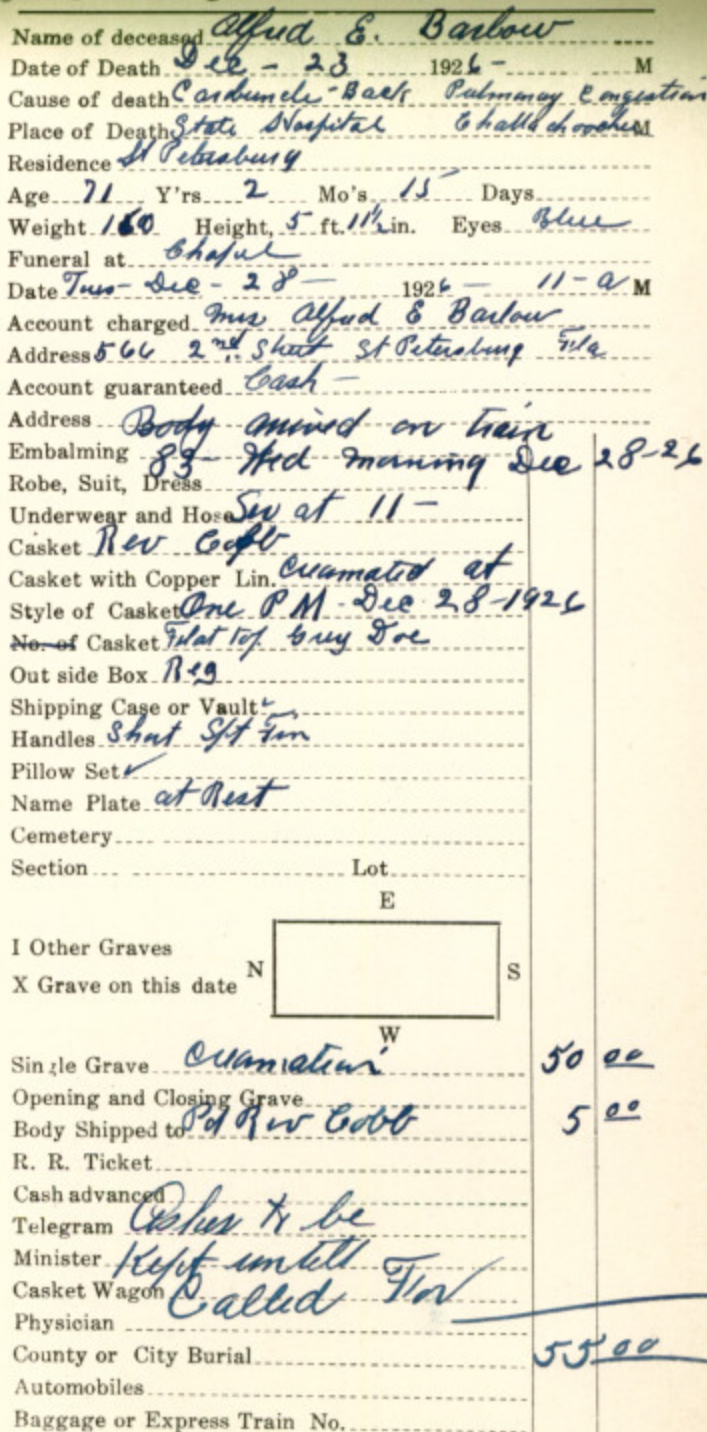 Name of deceased Alfred E. Barlow
Date of Death Dec - 23 1926 - M
Cause of death Carbuncle - Back Pulmonary Congestion
Place of Death State Hospital Chattachoochee M
Residence St Petersburg
Age 71 Y'rs 2 Mo's 15 Days
Weight 160 Height, 5 ft. 11 1/2 in. Eyes Blue
Funeral at Chapel
Date Tues - Dec - 28 - 1926 - 11 - a M
Account charged Mrs Alfred E Barlow
Address 566 2nd Street St Petersburg Fla
Account guaranteed Cash -
Address Body arrived on train
Embalming 83 - Wed morning Dec 28-26
Robe, Suit, Dress
Underwear and Hose Ser at 11 -
Casket Rev Cobb
Casket with Copper Lin. Creamated at
Style of Casket One P M - Dec 28-1926
No. of Casket Flat top Grey Doe
Out side Box Reg
Shipping Case or Vault
Handles Short
Pillow Set ✓
Name Plate at Rest
Cemetery
Section Lot
E
I Other Graves
N S
X Grave on this date
W
Single Grave Creamation 50 00
Opening and Closing Grave
Body Shipped to Pd Rev Cobb 5 00
R. R. Ticket
Cash advanced
Telegram Ashes to be
Minister Kept untill
Casket Wagon Called For
Physician
County or City Burial 55 00
Automobiles
Baggage or Express Train No.